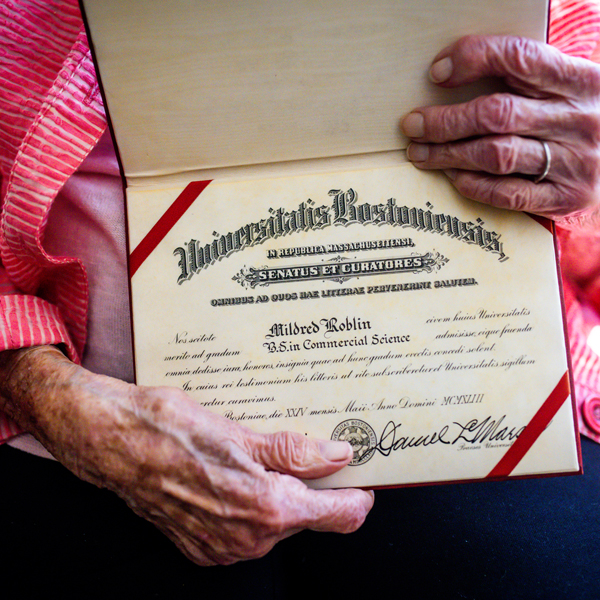 Universitatis Bostoniensis,
IN REPUBLICA MASSACHUSETTENSI,
SENATUS ET CURATORES
OMNIBUS AD QUOS HAE LITTERAE PERVENERINT SALUTEM.
Nos scitote Mildred Roblin civem huius Universitatis
merito ad gradum B.S. in Commercial Science admisisse, eique
omnia dedisse iura, honores, insignia quae ad hunc gradum evectis concedi solent.
In cuius rei testimonium his litteris ut rite subscriberetur et Universitatis sigillum
curavimus.
Bostoniae, die XXIV mensis Maii Anno Domini MCMXLIII
Daniel L. Mars